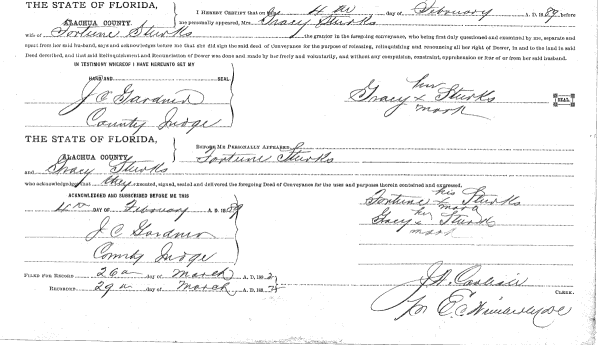 THE STATE OF FLORIDA,
ALACHUA COUNTY.
I HEREBY CERTIFY that on 4th day of February A. D. 1889 before
me personally appeared, Mrs. Gracy Sturks
wife of Fortune Sturks, the grantor in the foregoing conveyance, who being first duly questioned and examined by me, separate and
apart from her said husband, says and acknowledges before me that she did sign the said deed of Conveyance for the purpose of releasing, relinquishing and renouncing all her right of Dower, in and to the land in said
Deed described, and that said Relinquishment and Renunciation of Dower was done and made by her freely and voluntarily, and without any compulsion, constraint, apprehension or fear of or from her said husband.
IN TESTIMONY WHEREOF I HAVE HEREUNTO SET MY
HAND AND SEAL
J C Gardner
County Judge
her
Gracy x Sturks
mark
SEAL
THE STATE OF FLORIDA,
ALACHUA COUNTY.
BEFORE ME PERSONALLY APPEARED
Fortune Sturks
and Gracy Sturks
who acknowledge that they executed, signed, sealed and delivered the foregoing Deed of Conveyance for the uses and purposes therein contained and expressed.
ACKNOWLEDGED AND SUBSCRIBED BEFORE ME THIS
4th DAY OF February A. D. 1889
J C Gardner
County Judge
his
Fortune x Sturks
mark
her
Gracy x Sturks
mark
FILED FOR RECORD 26 day of March A. D. 189
RECORDED 29 day of March A. D. 189
CLERK.
for E.